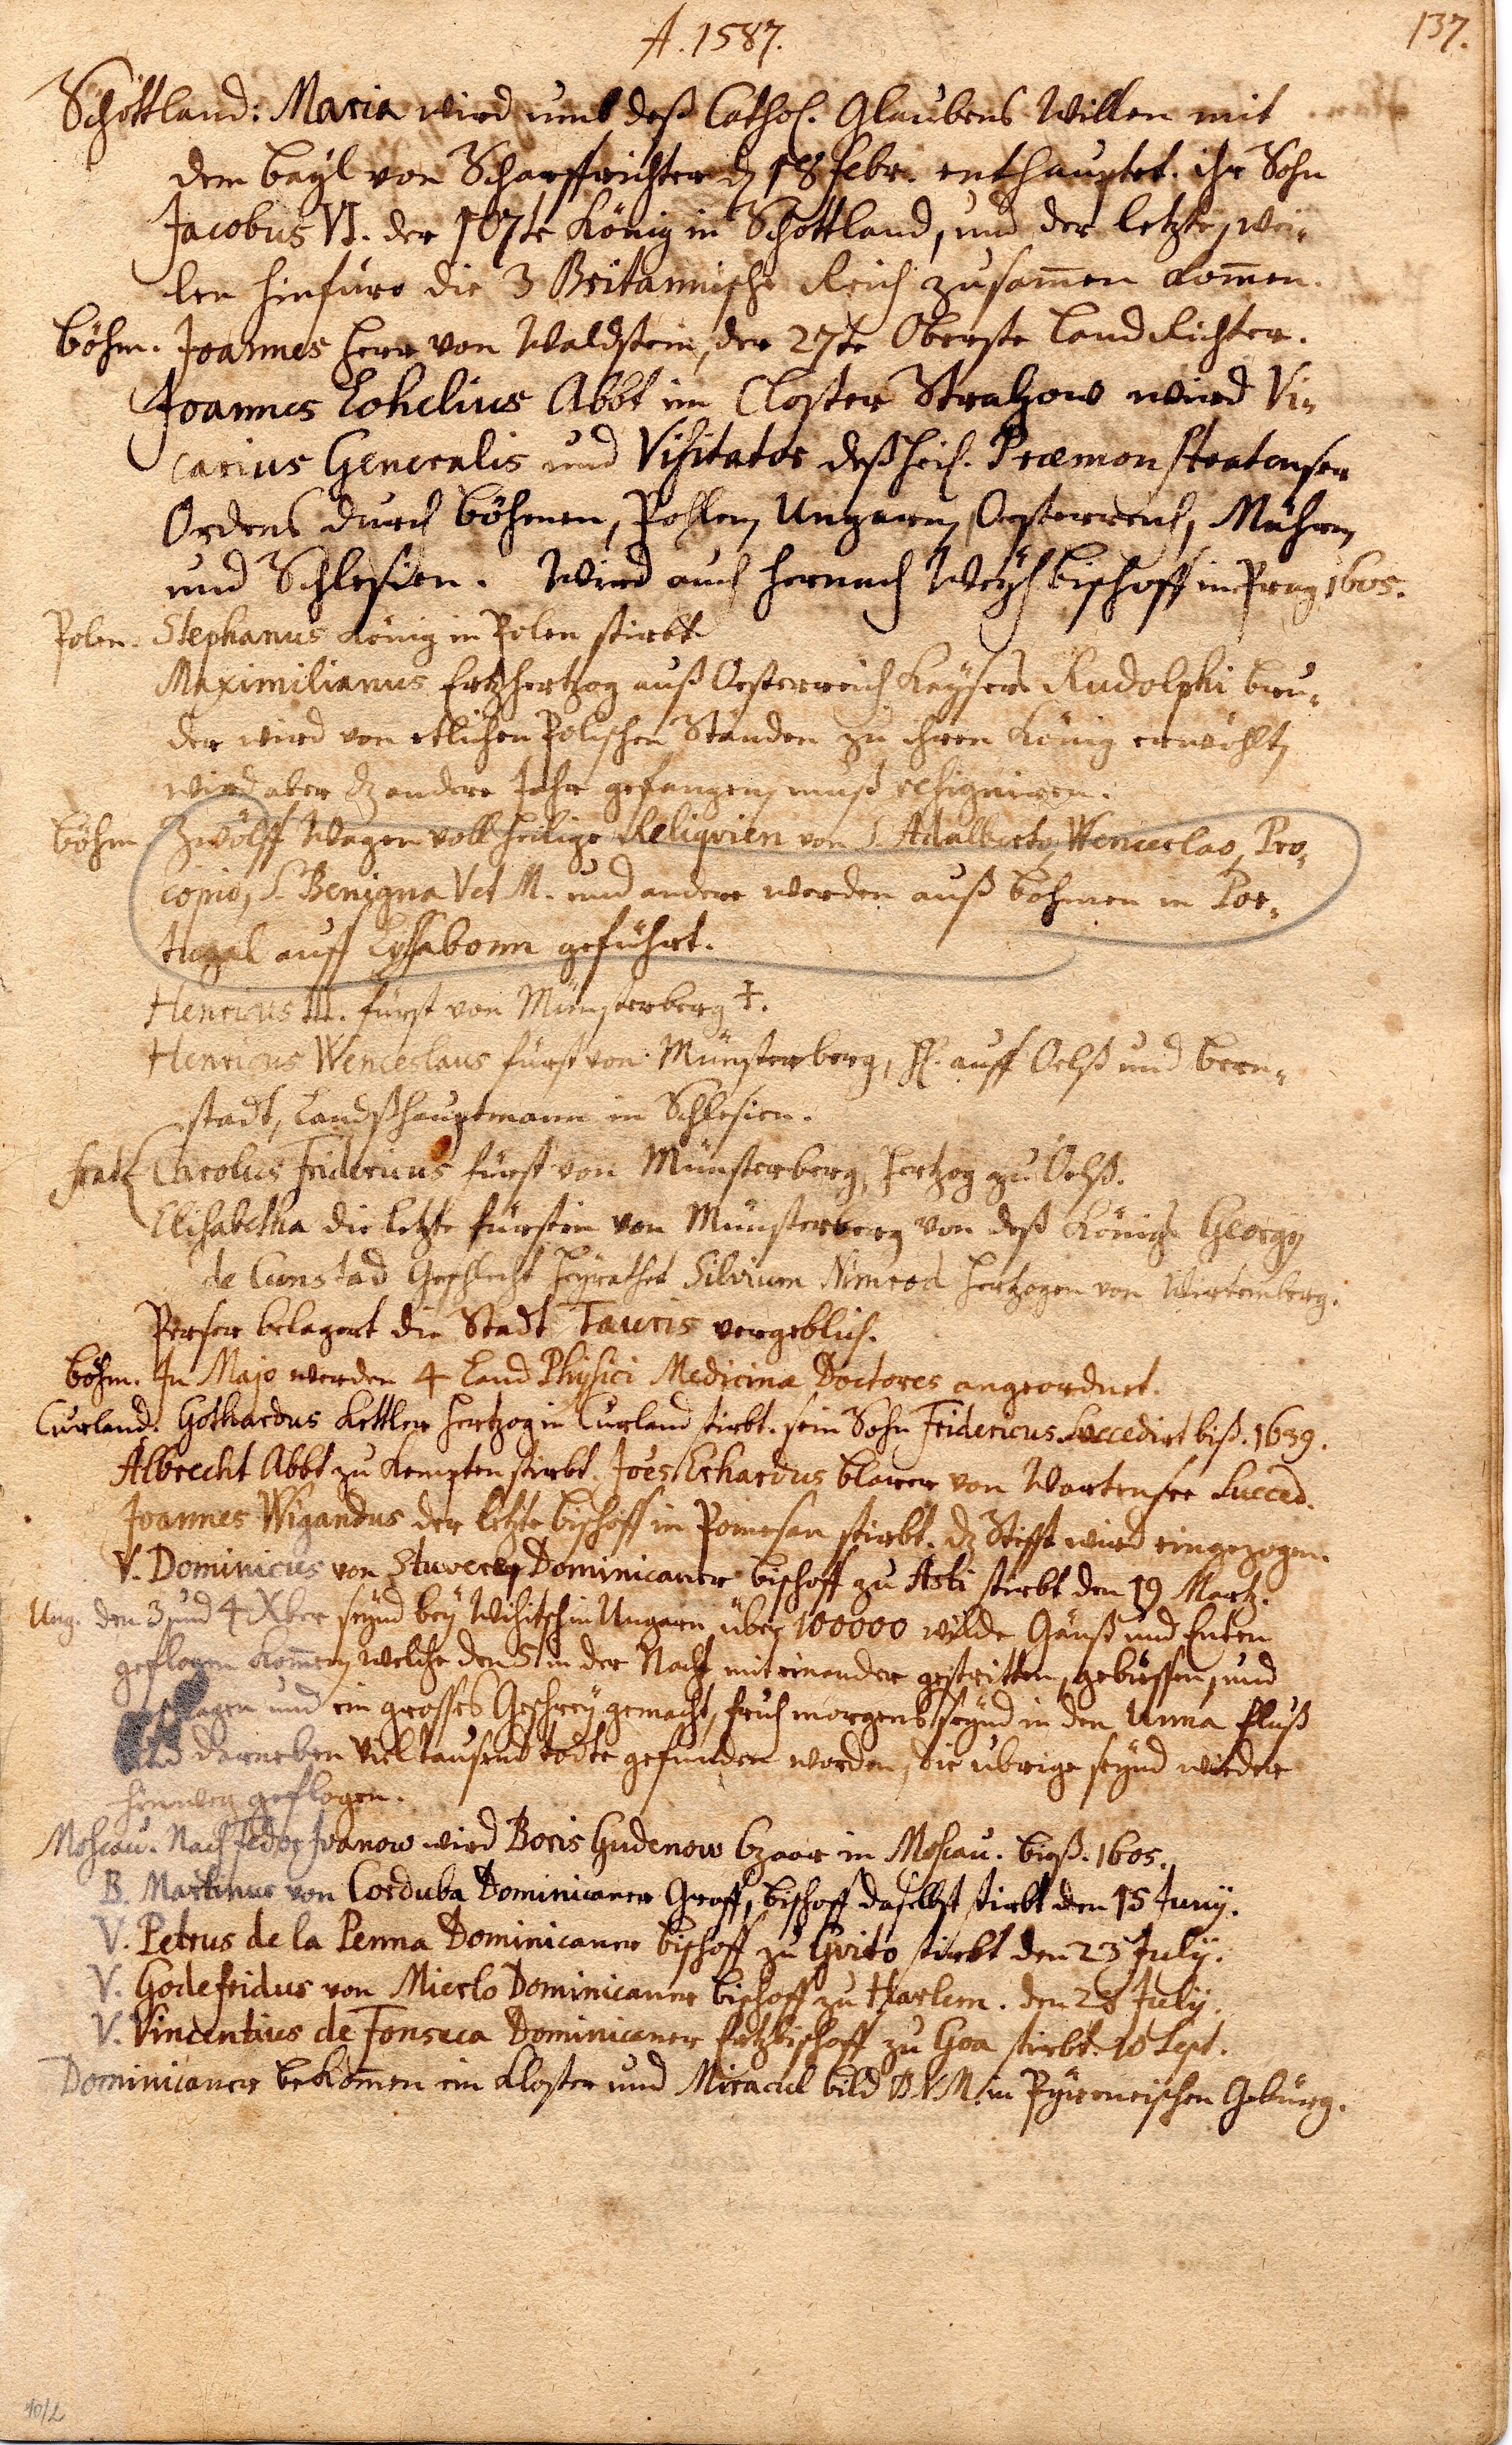 A. 1587.
137.
Schottland: Maria wird umb deß Cathol. Glaubens Willen mit
dem beyl von Scharffrichter dz 18 febr. enthauptet. ihr Sohn
Jacobus VI. der 107te König in Schottland, und der letzte, wei-
len hinfüro die 3 Britannische Reich zusam̄en kom̄en.
Böhm. Joannes Herr von Waldstein, der 27te Oberste Land Richter.
Joannes Lohelius Abbt im Closter Strahow wird Vi-
carius Generalis und Visitator deß heil. Præmonstratenser
Ordens durch Böhmen, Pohlen, Ungarn, Oesterreich, Mähren,
und Schlesien. Wird auch hernach Weyhbischoff in Prag 1605.
Polen. Stephanus König in Polen stirbt.
Maximilianus Ertzhertzog auß Oesterreich Kaysers Rudolphi bru-
der wird von etlichen Polischen Ständen zu ihren König erwöhlt,
wird aber dz andere Jahr gefangen, muß resigniren.
Böhm. Zwölff Wagen voll heilige Reliqvien von S. Adalberto, Wenceslao, Pro-
copio, S. Benigna V et M. und andere werden auß böhmen in Por-
tugal auff Lyssabonn geführt.
Henricus III. fürst von Münsterberg †.
Henricus Wenceslaus fürst von Münsterberg, H. auff Oelß und bern-
stadt, Landßhauptmann in Schlesien.
frat. Carolus Fridericus fürst von Münsterberg, Hertzog zu Oelß.
Elisabetha die letzte fürstin von Münsterberg von deß Königs Georgy
de Cunstad Geschlecht heyrathet Silvium Nimrod Hertzogen von Wirtemberg.
Perser belagert die Stadt Tauris vergeblich.
Böhm. In Majo werden 4 Land Physici Medicina Doctores angeordnet.
Curland. Gothardus Kettler Hertzog in Curland stirbt. sein Sohn Fridericus Succedirt biß. 1639.
Albrecht Abbt zu Kempten stirbt. Joes Erhardus blarer von Wartensee Succed.
Joannes Wigandus der letzte bischoff in Pomesan stirbt. dz Stifft wird eingezogen.
V. Dominicus von Dominicaner bischoff zu Asti stirbt den 19 Martz.
Ung. den 3 und 4 Xber seynd bey Wihitsch in Ungarn über 100000 wilde Gänß und Enten
geflogen kom̄en, welche den 5 in der Nacht miteinander gestritten, gebissen, und
und ein grosses Geschrey gemacht, früh morgens seynd in den Unna fluß
und darneben viel tausend todte gefunden worden, die übrige seynd wieder
hinweg geflogen.
Moscau. Nach Fedor Ivanow wird Boris Gudenow Czaar in Moscau. biß. 1605.
B. Martinus von Corduba Dominicaner Graff, bischoff daselbst stirbt den 15 Juny.
V. Petrus de la Penna Dominicaner bischoff zu Qvito stirbt den 23 July.
V. Godefridus von Mierlo Dominicaner bischoff zu Harlem. den 28 July.
V. Vincentius de Fonseca Dominicaner Ertzbischoff zu Goa stirbt. 10 Sept.
Dominicaner bekom̄en ein Kloster und Miracul bild B.V.M. in Pyreneischen Gebürg.